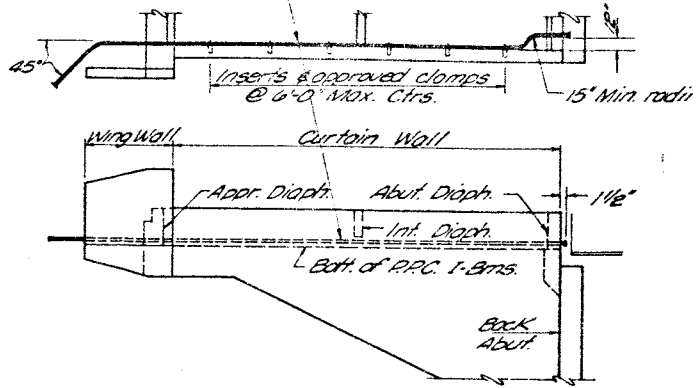 12"
45°
Inserts & approved clamps
@ 6'-0" Max. Ctrs.
15" Min. radii
Wing Wall
Curtain Wall
Appr. Diaph.
Abut. Diaph.
1 1/2"
Int. Diaph.
Bott. of P.P.C. I-Bms.
Back
Abut.